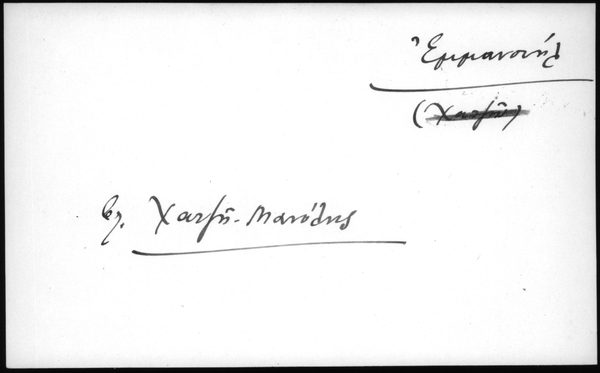 Ἐμμανουήλ
(Χατζῆ)
βλ. Χατζῆ-Μανώλης